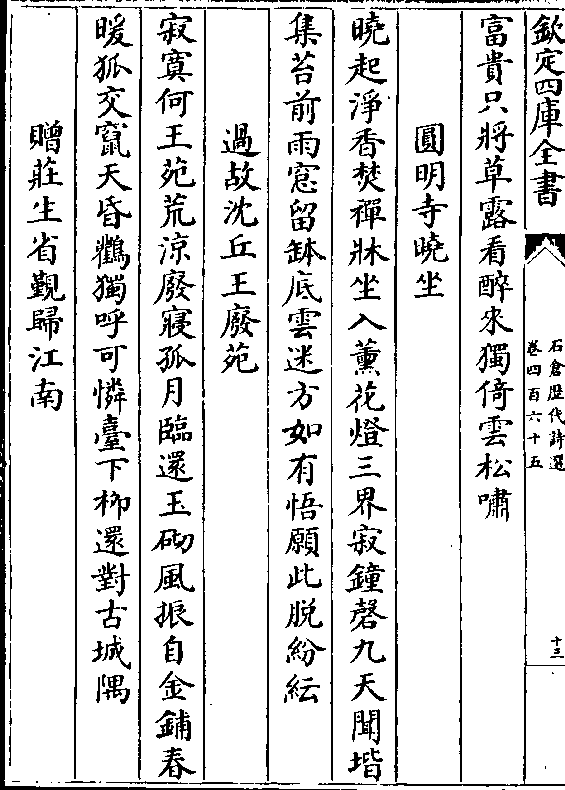 欽定四庫全書
石倉歷代詩選
卷四百六十五
十三
富貴只將草露看醉來獨倚雲松嘯
圓明寺曉坐
曉起淨香焚禪牀坐入薰花燈三界寂鐘磬九天聞堦
集苔前雨窓留鉢底雲迷方如有悟願此脱紛紜
過故沈丘王廢苑
寂寞何王苑荒涼廢寢孤月臨還玉砌風振自金鋪春
暖狐交竄天昏鸛獨呼可憐臺下栁還對古城隅
贈莊生省覲歸江南